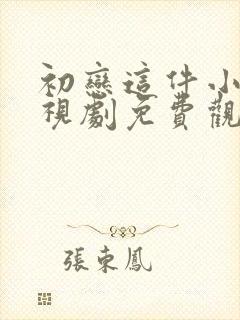 初戀這件小
視劇免費觀
張東鳳